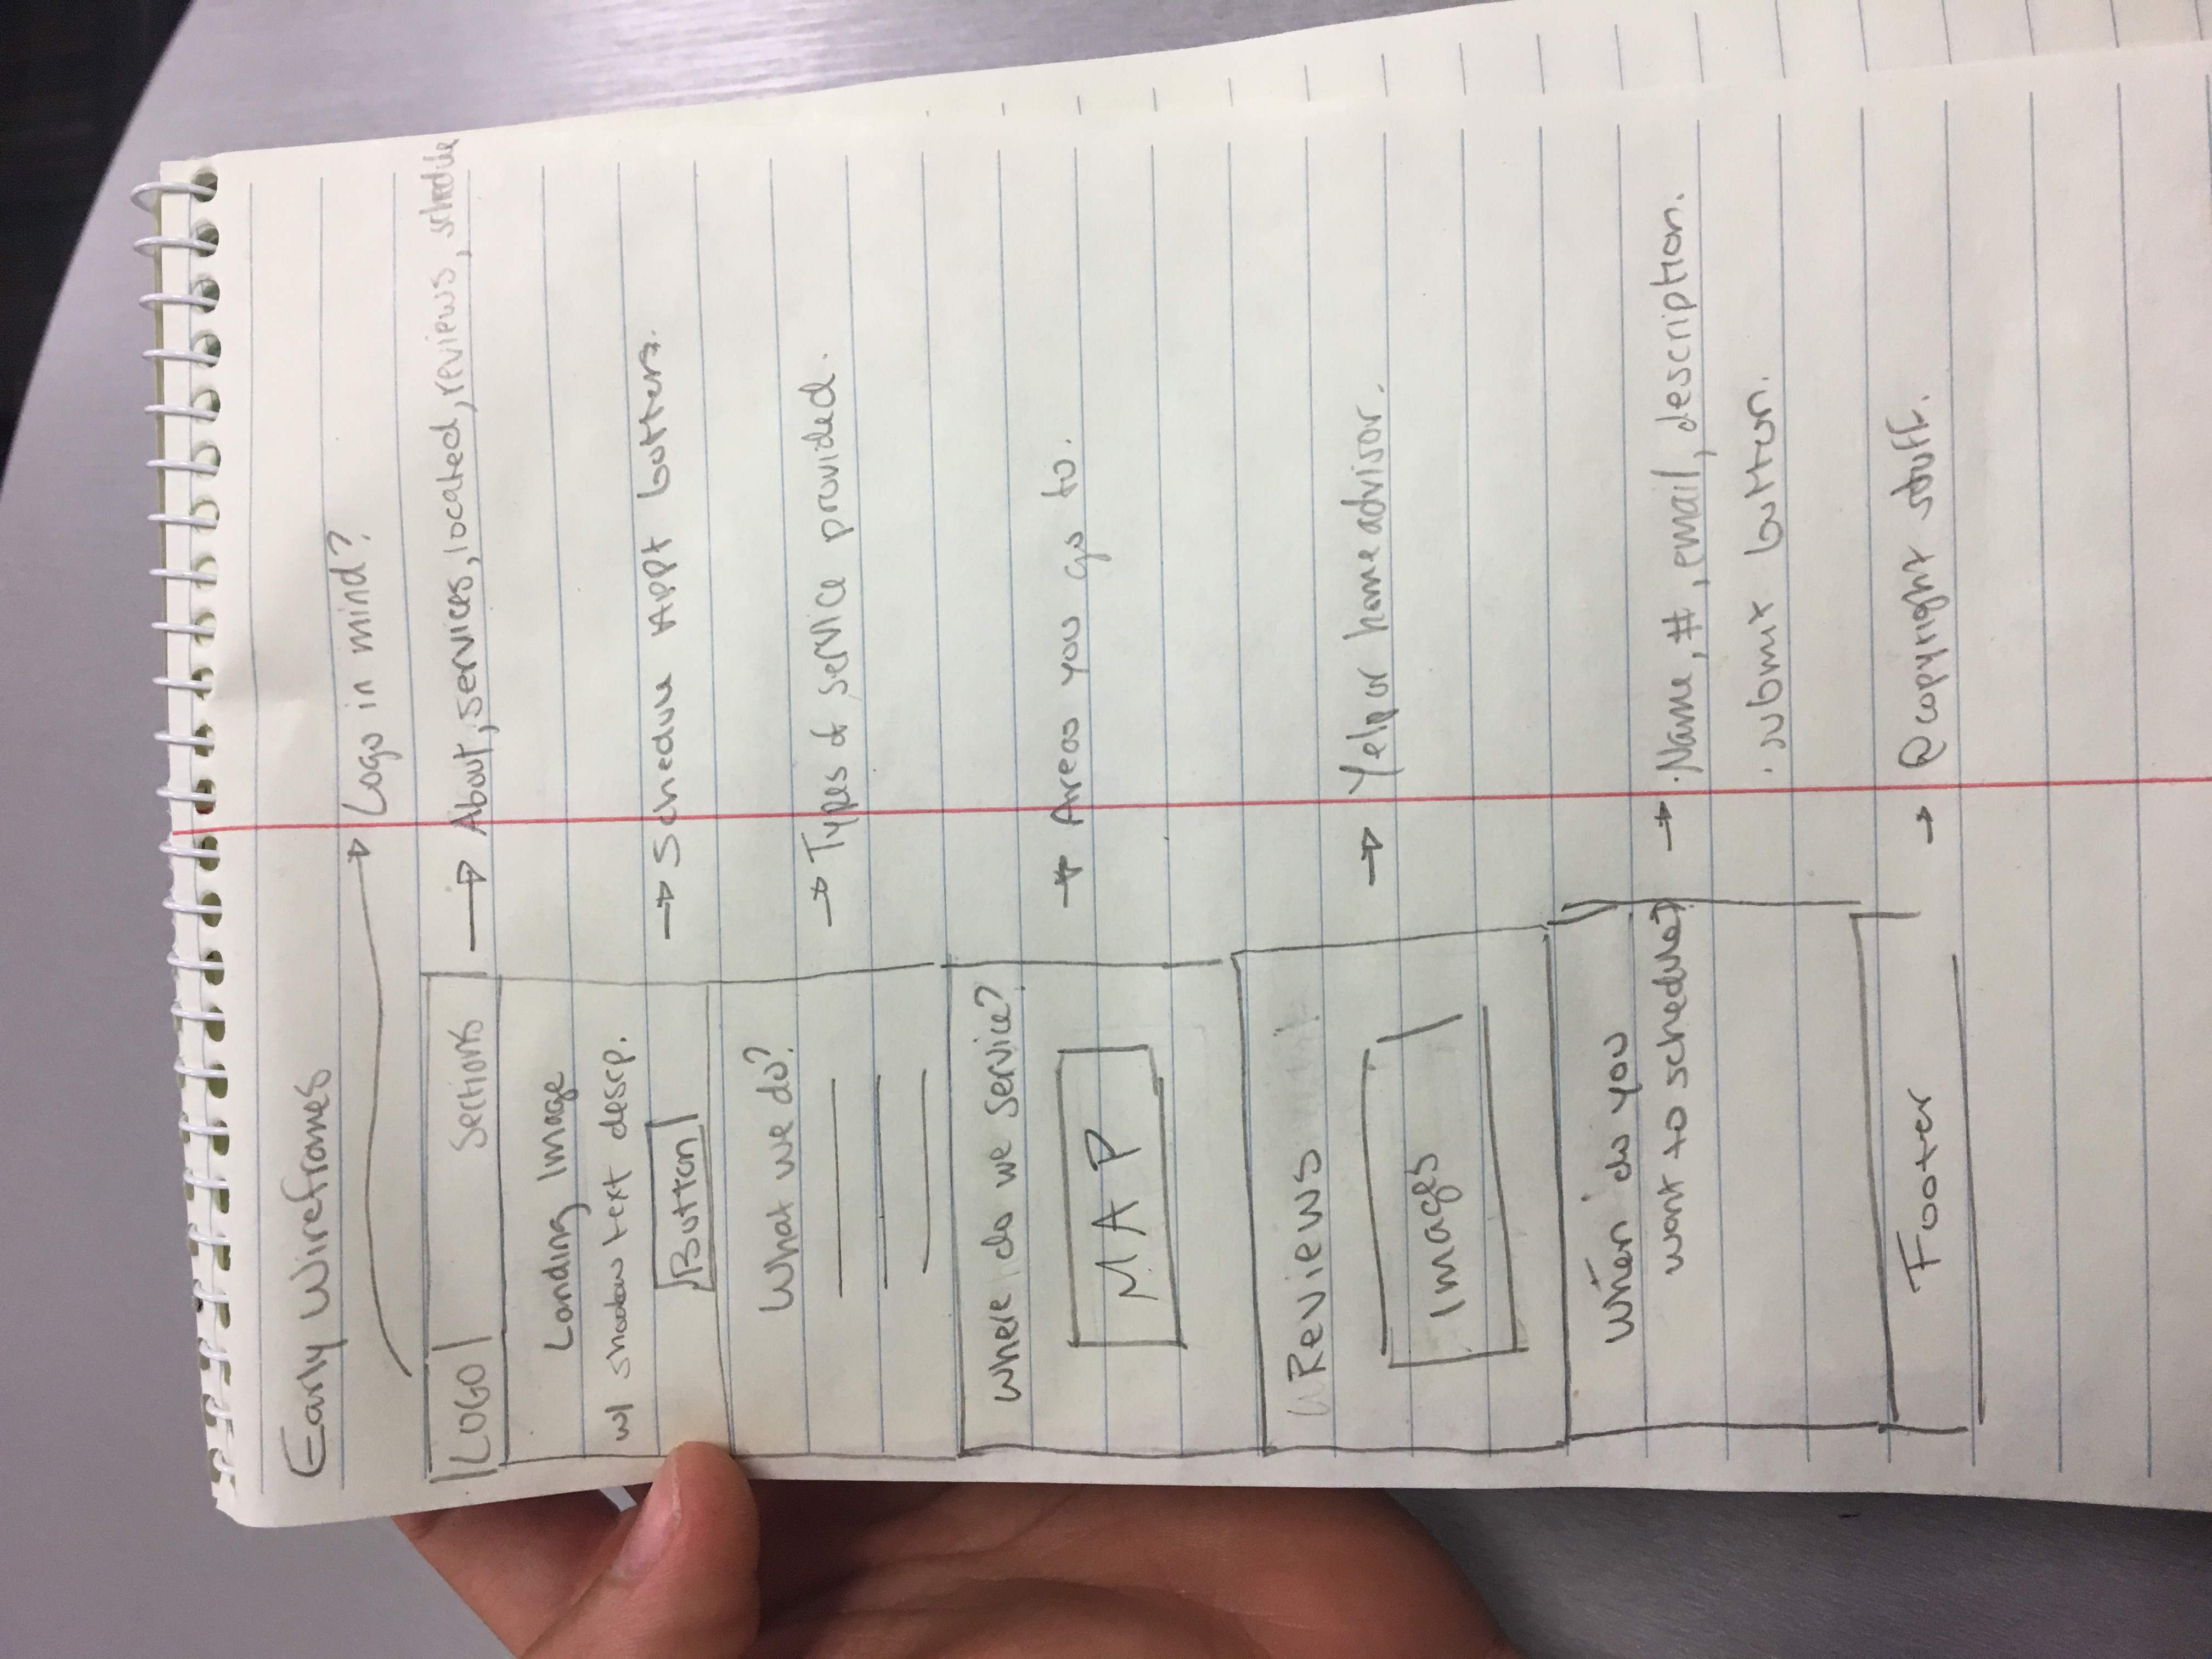 Early Wireframes
Logo in mind?
LOGO Sections → About, services, located, reviews, schedule
Landing Image
w/ shadow text descp.
Button → Schedule Appt buttons.
What we do?
→ Types of service provided.
Where do we service?
→ Areas you go to.
MAP
Reviews
→ Yelp or home advisor.
Images
When do you
want to schedule? → · Name, #, email, description.
· submit button.
Footer → @copyright stuff.